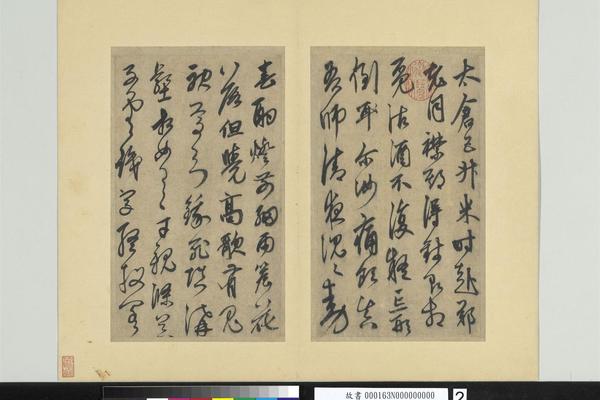 太倉五升米時赴鄭
老同襟期得錢即相
覓沽酒不復疑忘形
到爾汝痛飲真
吾師清夜沈々動
春酌燈前細雨簷花
落但覺高歌有鬼
神焉知餓死填溝
壑相如逸才親滌器
子雲識字終投閣
故書 000163N000000000
2